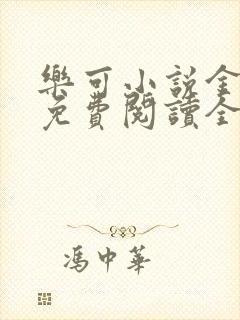 樂可小說全
免費閱讀全
馮中華